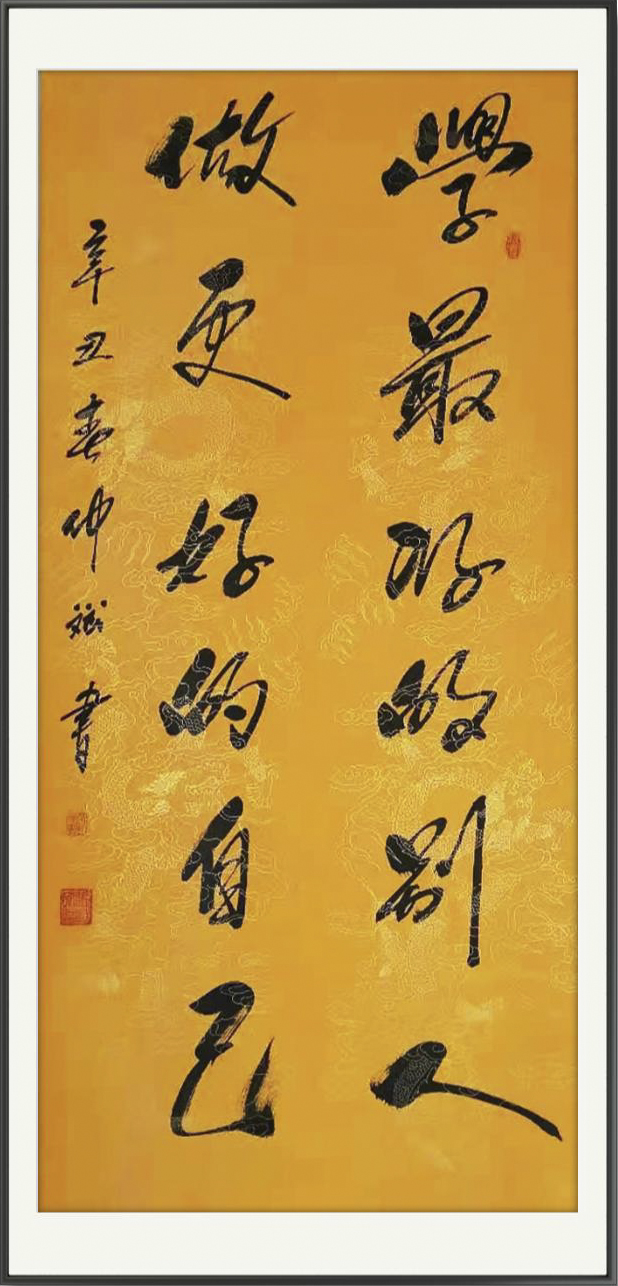 學最好的别人
做更好的自己
辛丑春仲斌書